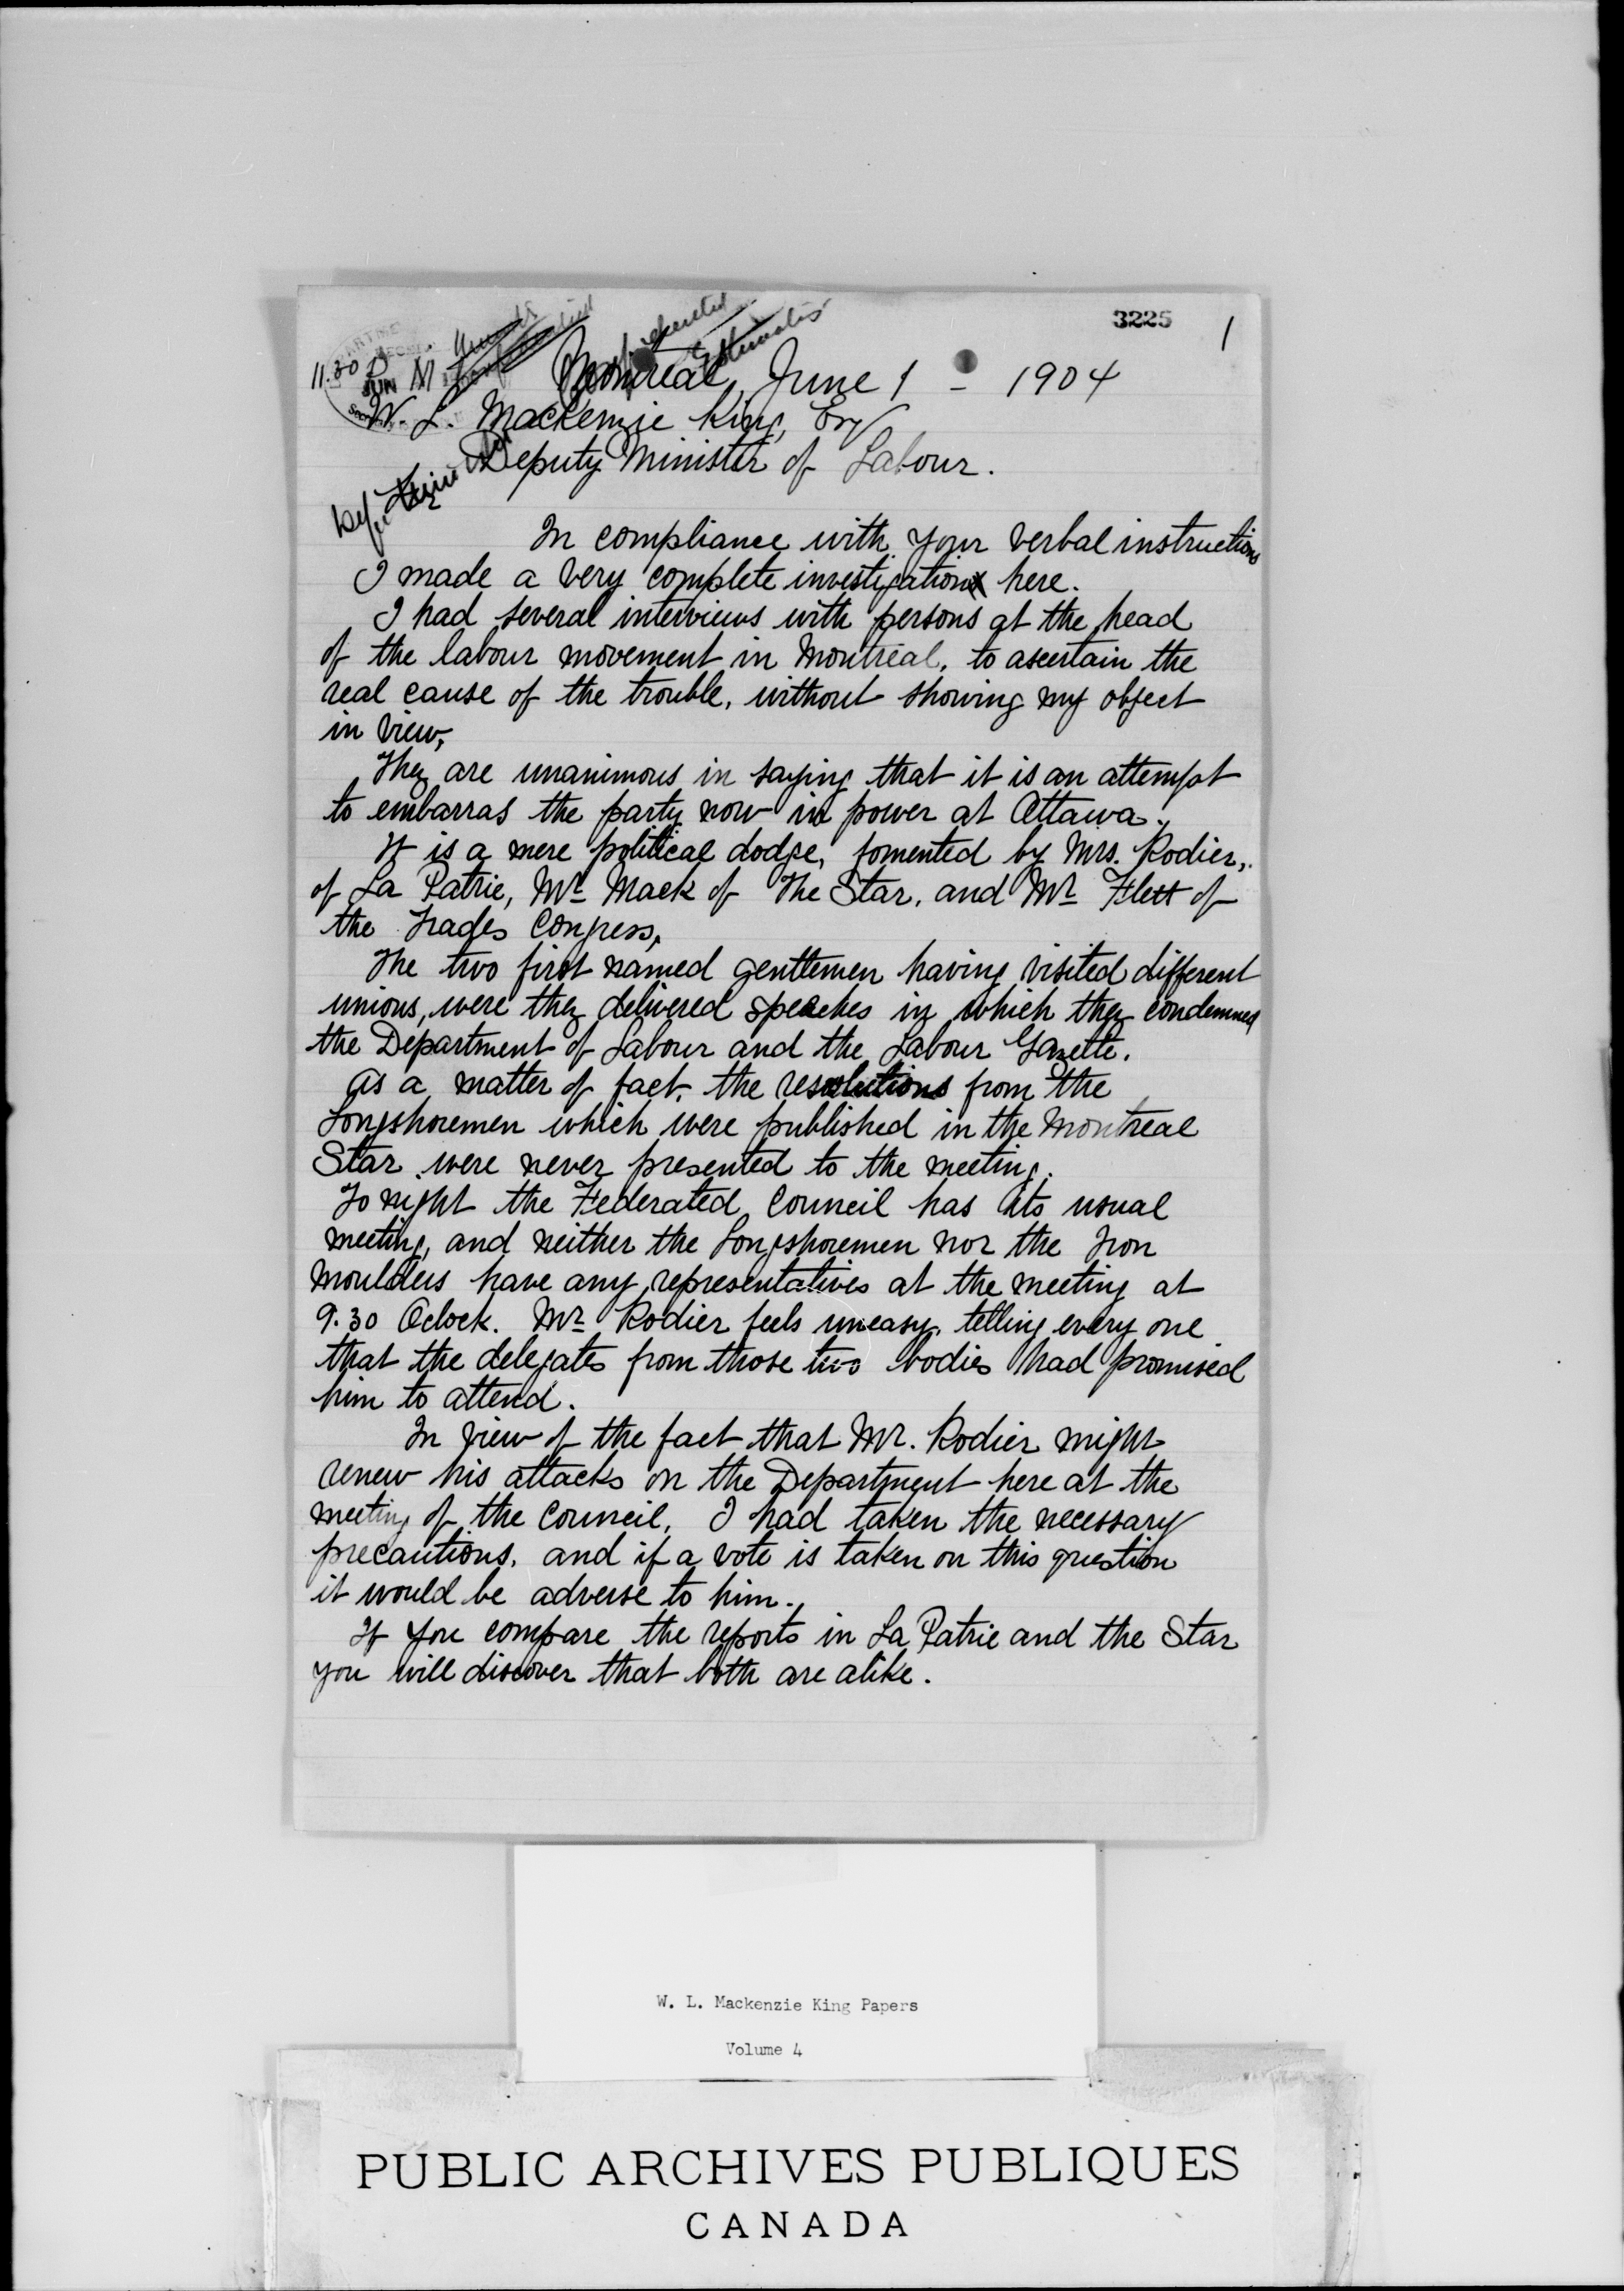 3225
1
11.30 P M
JUN
Montreal, June 1 - 1904
W. L. Mackenzie King, Esq
Deputy Minister of Labour.
In compliance with your verbal instructions
I made a very complete investigation here.
I had several interviews with persons at the head
of the labour movement in Montreal, to ascertain the
real cause of the trouble, without showing my object
in view.
They are unanimous in saying that it is an attempt
to embarras the party now in power at Ottawa.
It is a mere political dodge, fomented by Mrs. Rodier,
of La Patrie, Mr Mack of The Star, and Mr Flett of
the Trades Congress.
The two first named gentlemen having visited different
unions, were they delivered speeches in which they condemned
the Department of Labour and the Labour Gazette.
As a matter of fact, the resolutions from the
Longshoremen which were published in the Montreal
Star were never presented to the meeting.
To night the Federated Council has its usual
meeting, and neither the Longshoremen nor the Iron
Moulders have any representatives at the meeting at
9.30 Oclock. Mr Rodier feels uneasy, telling every one
that the delegates from those two bodies had promised
him to attend.
In view of the fact that Mr. Rodier might
renew his attacks on the Department here at the
meeting of the Council, I had taken the necessary
precautions, and if a vote is taken on this question
it would be adverse to him.
If you compare the reports in La Patrie and the Star
you will discover that both are alike.
W. L. Mackenzie King Papers
Volume 4
PUBLIC ARCHIVES PUBLIQUES
CANADA